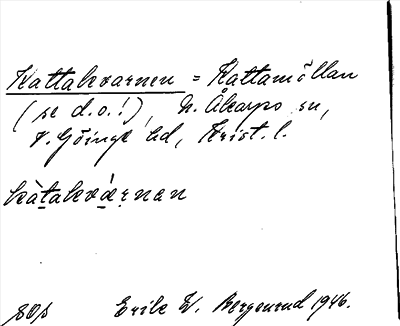 Kattakvarnen = Kattamöllan
(se d.o.!), N. Åkarps sn,
V. Göinge hd, Krist. l.
kàtakvárnan
SOS Erik W. Bergenrud 1946.